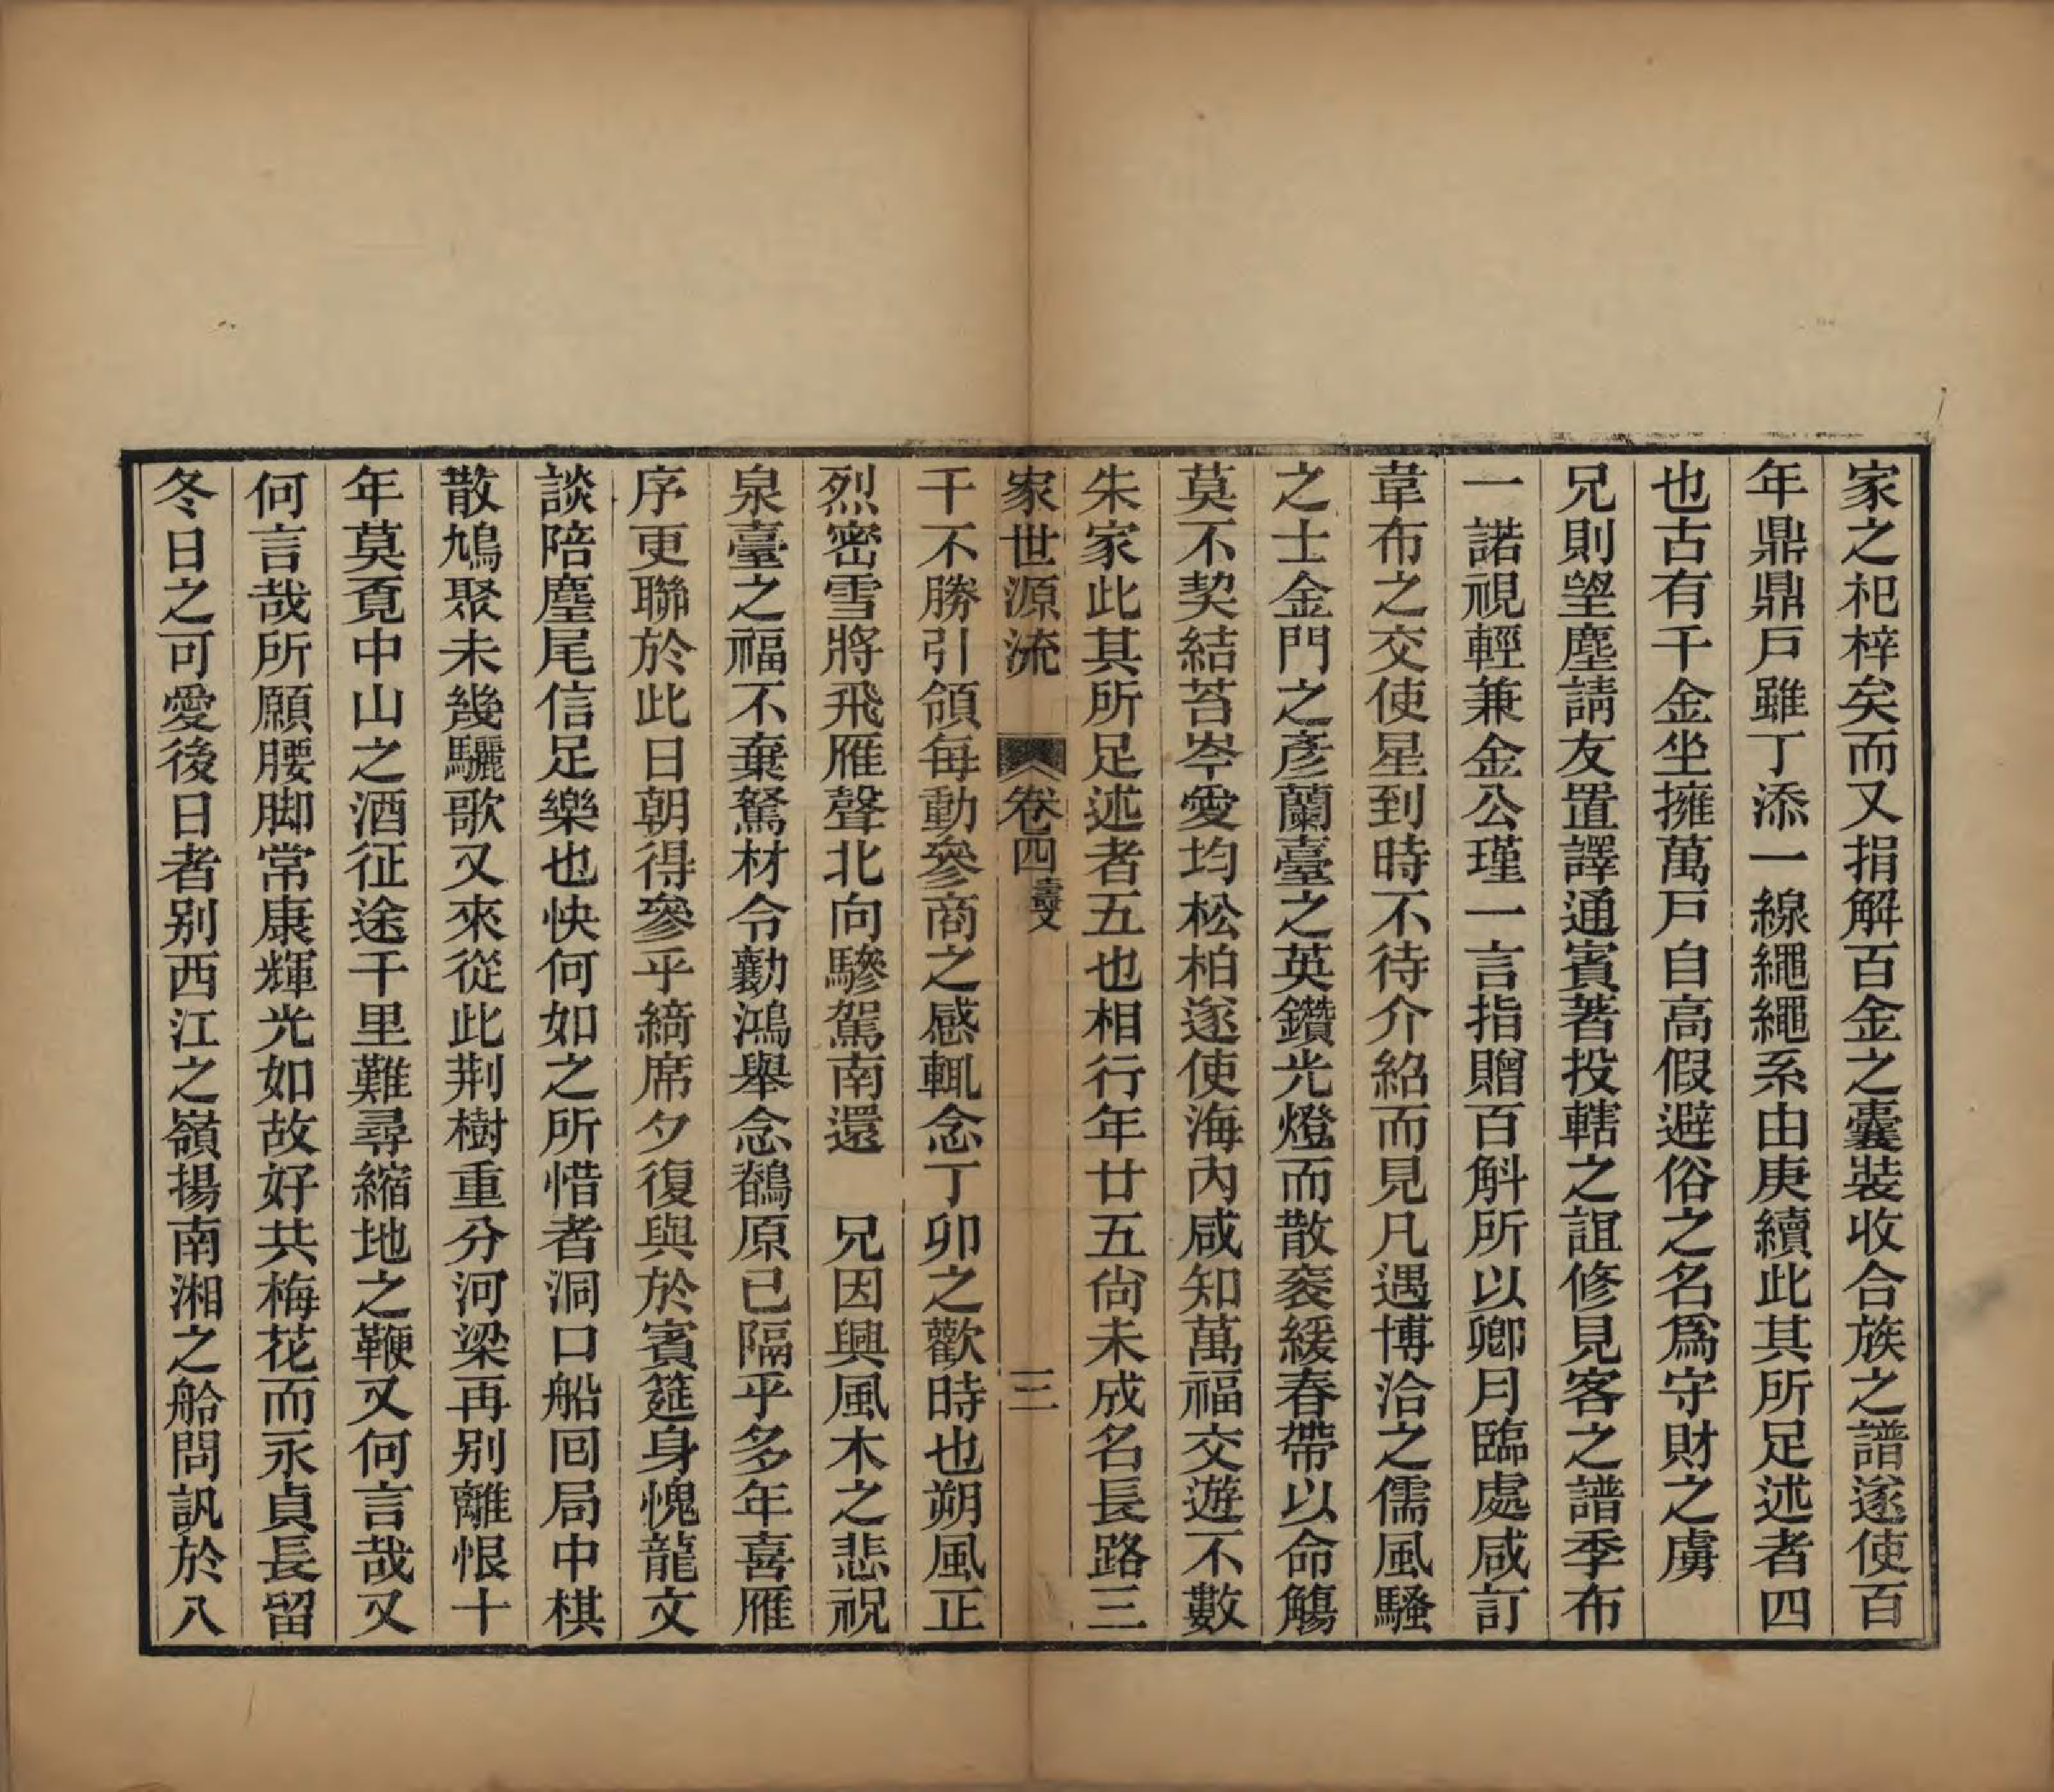 家之祀梓矣而又捐解百金之囊裝收合族之譜遂使百
年鼎鼎戸雖丁添一線繩繩系由庚續此其所足述者四
也古有千金坐擁萬戸自高假避俗之名爲守財之虜
兄則望塵請友置譯通賓著投轄之誼修見客之譜季布
一諾視輕兼金公瑾一言指贈百斛所以卿月臨處咸訂
韋布之交使星到時不待介紹而見凡遇博洽之儒風騷
之士金門之彥蘭臺之英鑽光燈而散袠緩春帶以命觴
莫不契結苔岑愛均松柏遂使海內咸知萬福交遊不數
朱家此其所足述者五也相行年廿五尙未成名長路三
家世源流 卷四 壽文 三
千不勝引領每動參商之感輒念丁卯之歡時也朔風正
烈密雪將飛雁聲北向驂駕南還 兄因興風木之悲祝
泉臺之福不棄駑材令勷鴻舉念鶺原已隔乎多年喜雁
序更聯於此日朝得參乎綺席夕復與於賓筵身愧龍文
談陪麈尾信足樂也快何如之所惜者洞口船囘局中棋
散鳩聚未幾驪歌又來從此荆樹重分河梁再別離恨十
年莫覔中山之酒征途千里難尋縮地之鞭又何言哉又
何言哉所願腰脚常康輝光如故好共梅花而永貞長留
冬日之可愛後日者別西江之嶺揚南湘之船問訊於八